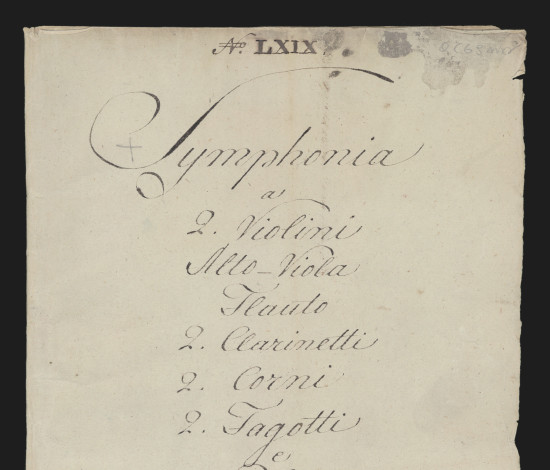 No. LXIX.
Symphonia
a
2. Violini
Alto-Viola
Flauto
2. Clarinetti
2. Corni
2. Fagotti
e